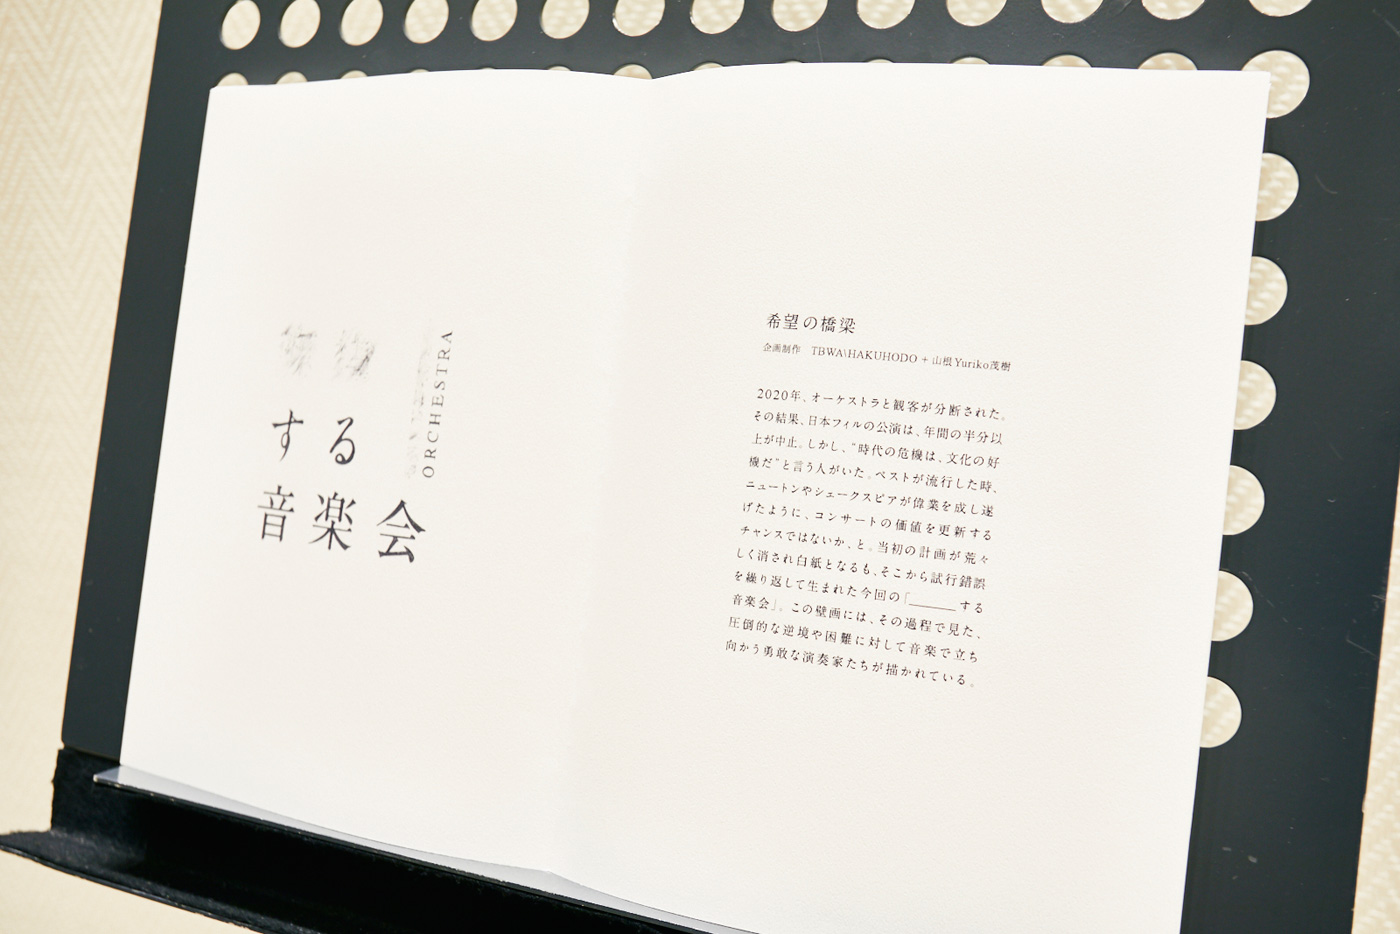 する
音楽会
ORCHESTRA
希望の橋梁
企画制作 TBWA\HAKUHODO + 山根Yuriko茂樹
2020年、オーケストラと観客が分断された。
その結果、日本フィルの公演は、年間の半分以
上が中止。しかし、“時代の危機は、文化の好
機だ”と言う人がいた。ペストが流行した時、
ニュートンやシェークスピアが偉業を成し遂
げたように、コンサートの価値を更新する
チャンスではないか、と。当初の計画が荒々
しく消され白紙となるも、そこから試行錯誤
を繰り返して生まれた今回の「______する
音楽会」。この壁画には、その過程で見た、
圧倒的な逆境や困難に対して音楽で立ち
向かう勇敢な演奏家たちが描かれている。